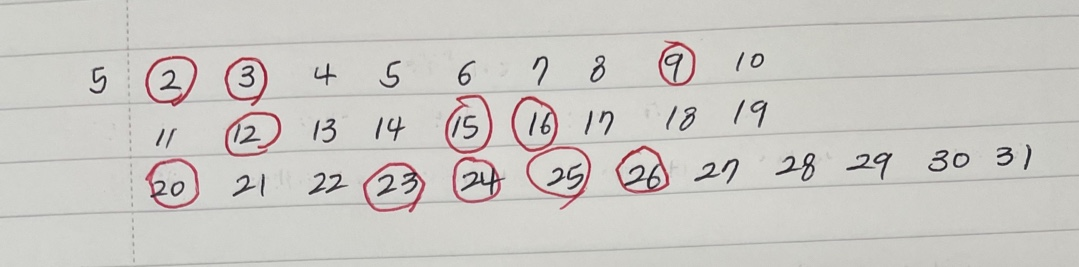 5 2 3 4 5 6 7 8 9 10
11 12 13 14 15 16 17 18 19
20 21 22 23 24 25 26 27 28 29 30 31